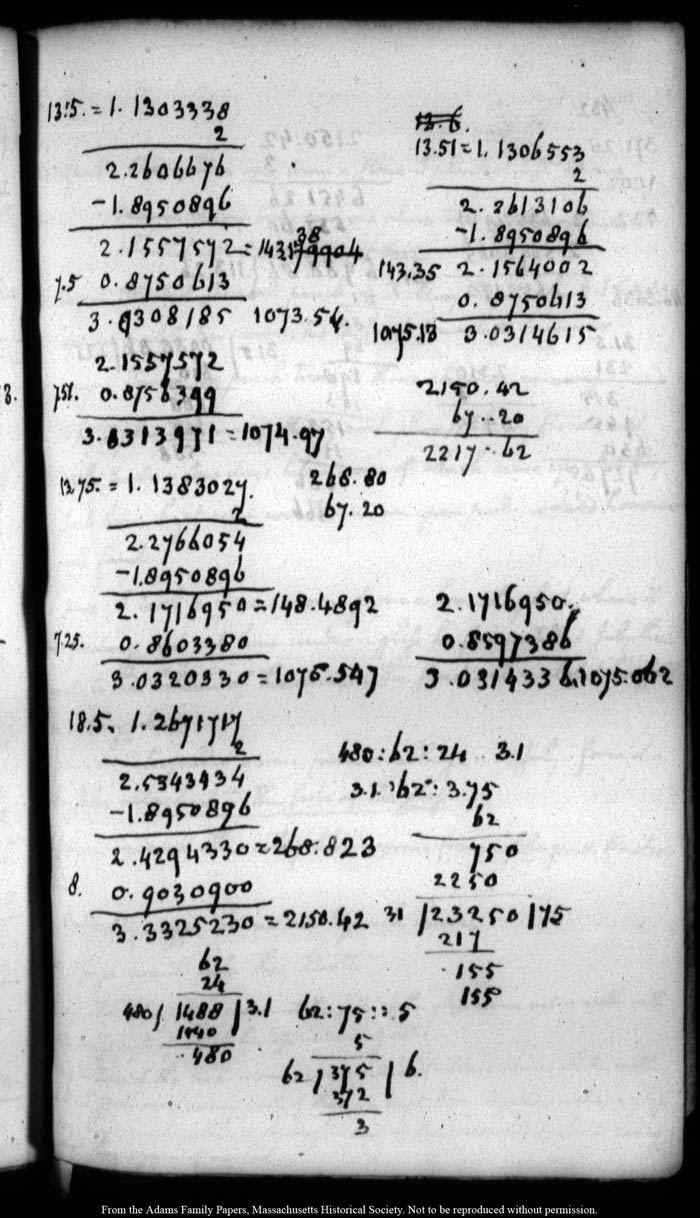 13.5. = 1.1303338
2
2.2606676
-1.8950896
2.1557572 = 143.179904
38
7.5 0.8750613
3.0308185 1073.54.
2.1557572
7.51. 0.8756399
3.0313971 = 1074.97
8.
12.75. = 1.1383027.
2
2.2766054
-1.8950896
2.1716950 = 148.4892
7.25. 0.8603380
3.0320330 = 1076.547
18.5. 1.2671717
2
2.5343434
-1.8950896
2.4294330 = 268.823
8. 0.9030900
3.3325230 = 2150.42
62
24
480/ 1488 / 3.1
1440
. 480
13.6.
13.51 = 1.1306553
2
2.2613106
-1.8950896
143.35 2.1564002
0.8750613
1075.18 3.0314615
2150.42
67..20
2217..62
268.80
67.20
2.1716950.
0.8597386
3.0314336.1075.062
480:62:24 3.1
3.1:62:3.75
62
750
2250
31 /23250/75
217
.155
155
62:75::5
5
62 / 375 / 6.
372
3
From the Adams Family Papers, Massachusetts Historical Society. Not to be reproduced without permission.